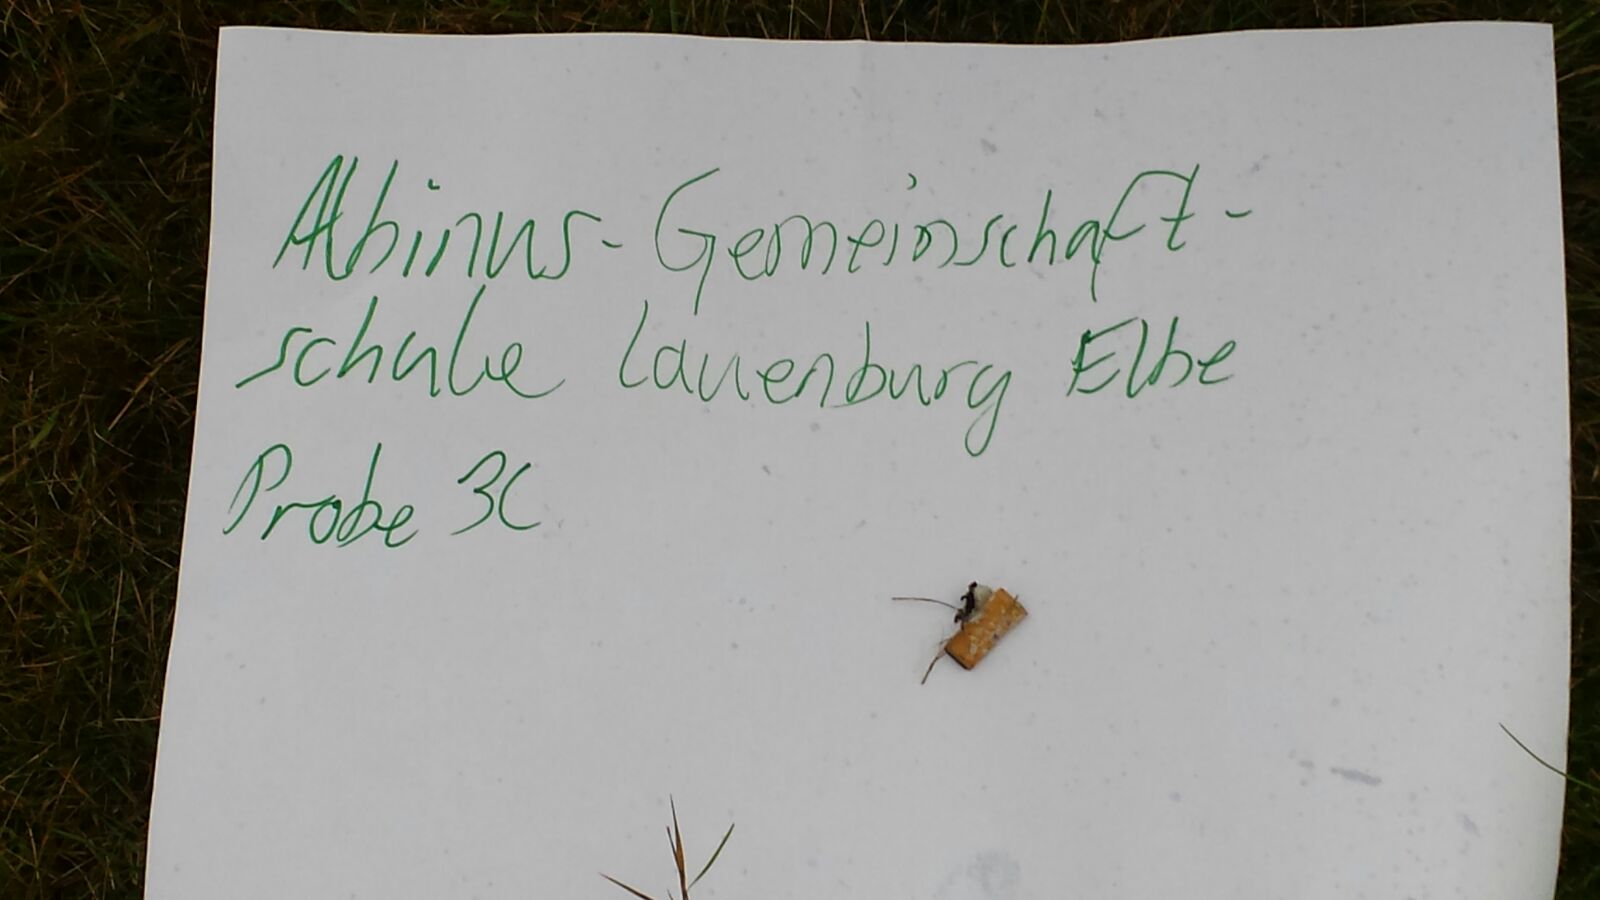 Albinus-Gemeinschaft-
schule Lauenburg Elbe
Probe 3C